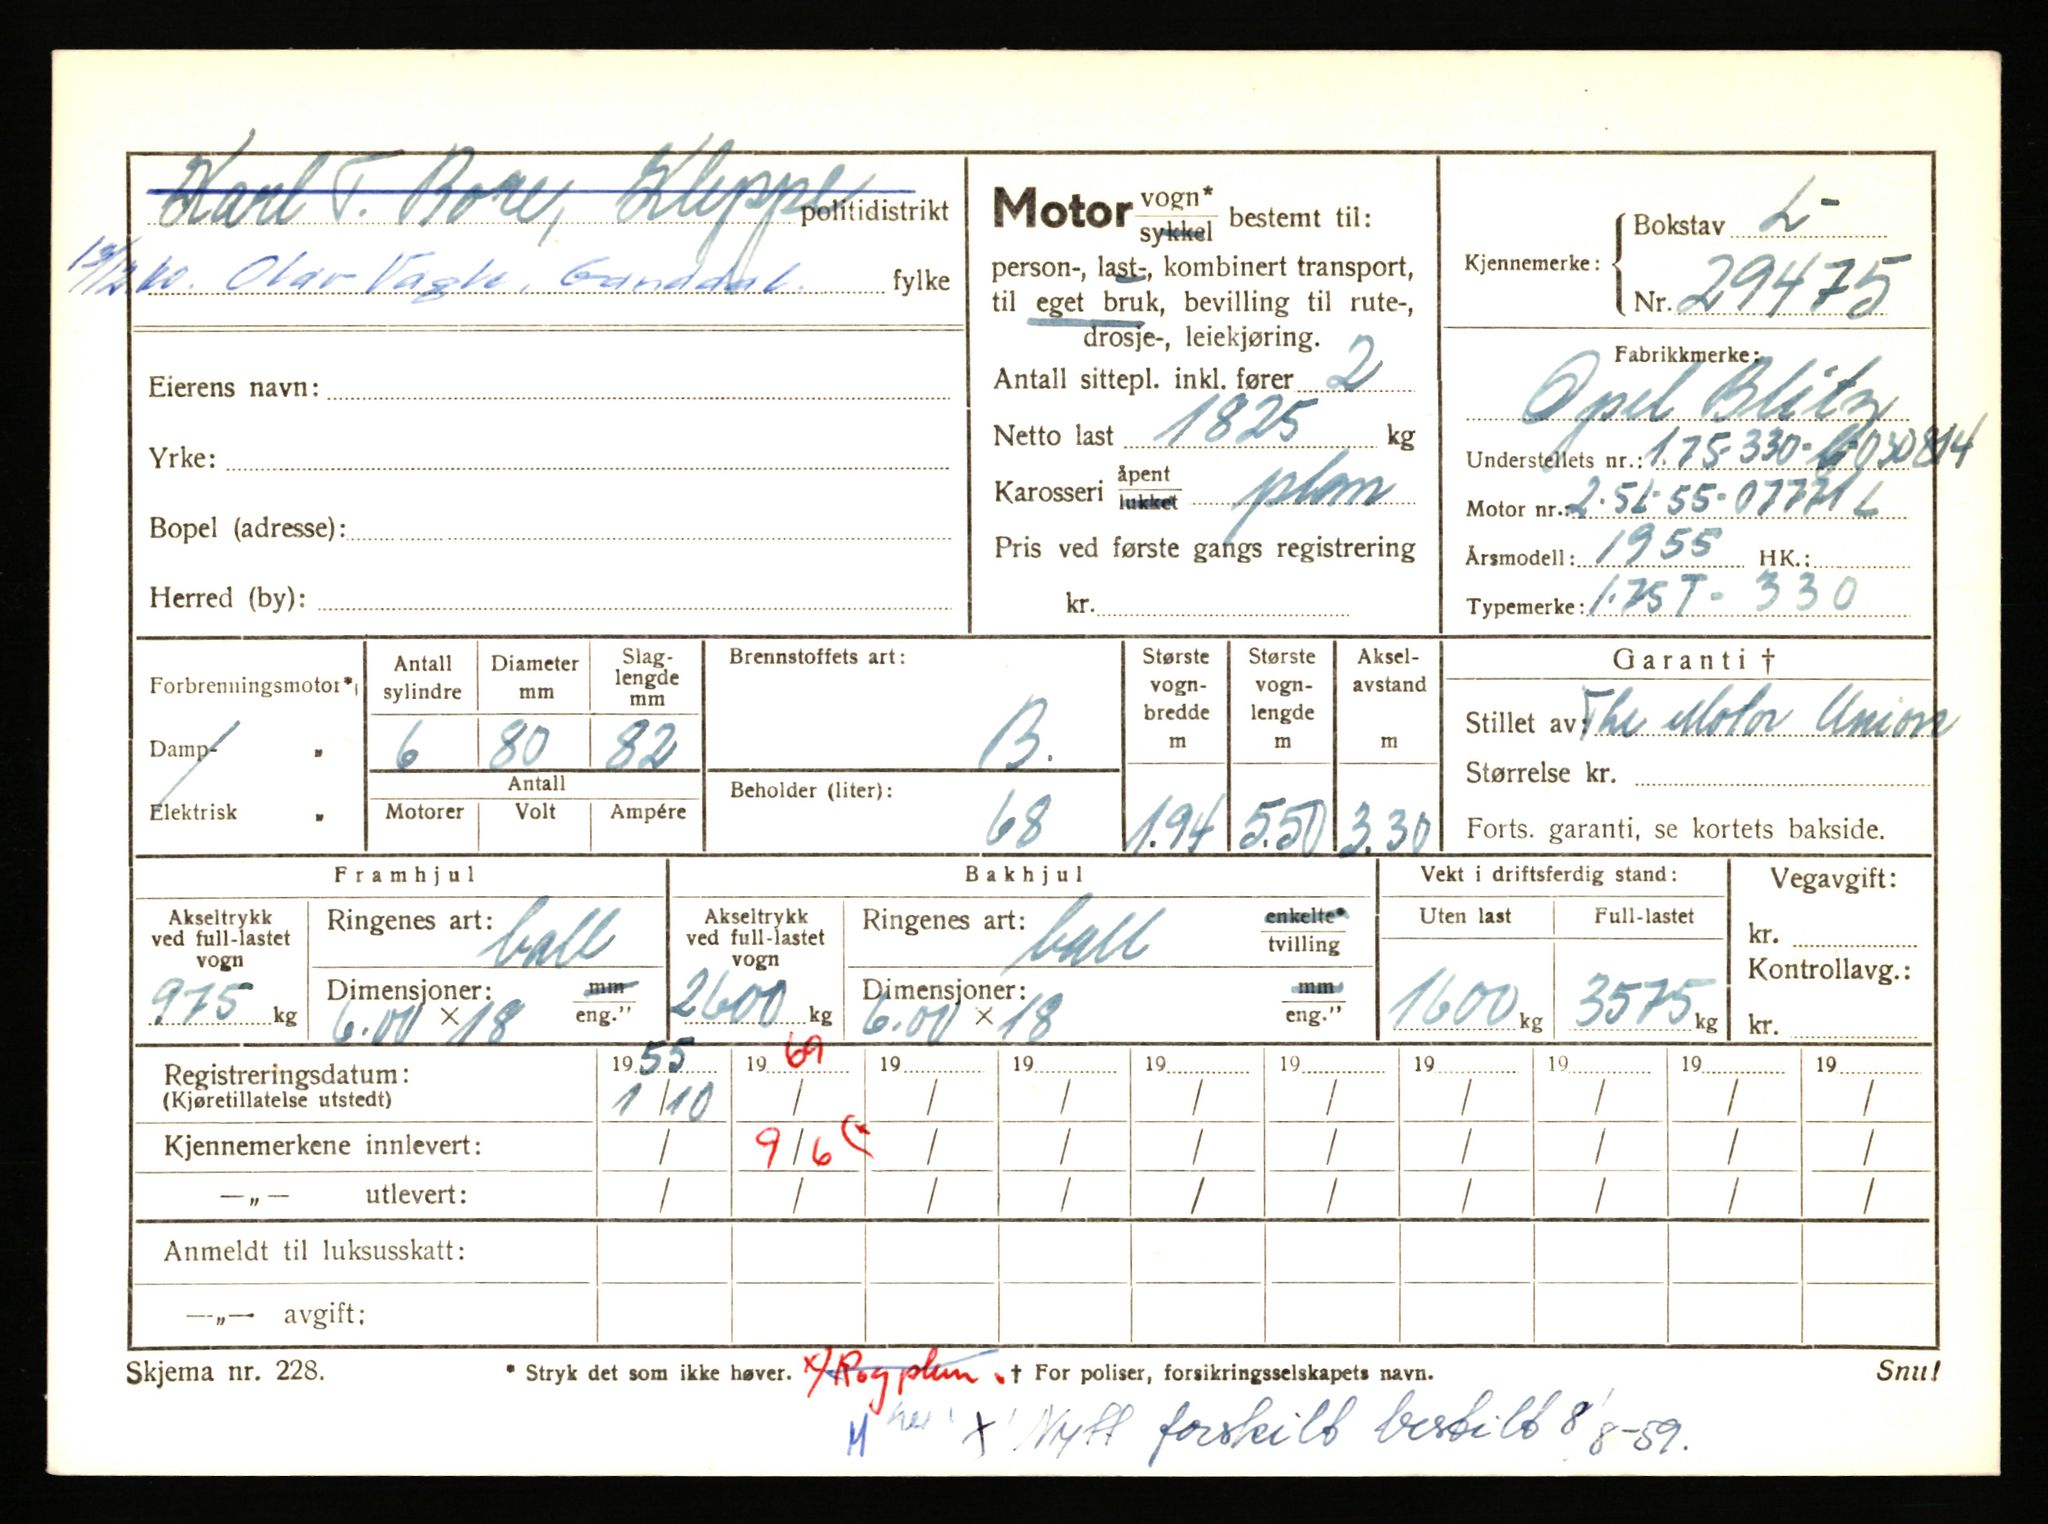 Karl T. Bore, Kleppe politidistrikt
Olav Vagle, Ganddal. fylke
Eierens navn:
Yrke:
Bopel (adresse):
Herred (by):
Motor vogn* sykkel bestemt til:
person-, last-, kombinert transport,
til eget bruk, bevilling til rute-,
drosje-, leiekjøring.
Antall sittepl. inkl. fører 2
Netto last 1825 kg
Karosseri åpent lukket plan
Pris ved første gangs registrering
kr.
Kjennemerke: Bokstav L-
Nr. 29475
Fabrikkmerke:
Opel Blitz
Understellets nr.: 1.75-330-L-030814
Motor nr.: 2.5L-55-07771L
Årsmodell: 1955 HK.:
Typemerke: 1.75T-330
Forbrenningsmotor*
Damp- „
Elektrisk „
Antall sylindre 6
Diameter mm 80
Slag-lengde mm 82
Antall
Motorer Volt Ampére
Brennstoffets art: B.
Beholder (liter): 68
Største vogn-bredde m 1.94
Største vogn-lengde m 5.50
Aksel-avstand m 3.30
Garanti †
Stillet av: The Motor Union
Størrelse kr.
Forts. garanti, se kortets bakside.
Framhjul
Akseltrykk ved full-lastet vogn 975 kg
Ringenes art: ball
Dimensjoner: 6.00 × 18 mm eng."
Bakhjul
Akseltrykk ved full-lastet vogn 2600 kg
Ringenes art: ball enkelte* tvilling
Dimensjoner: 6.00 × 18 mm eng."
Vekt i driftsferdig stand:
Uten last 1600 kg
Full-lastet 3575 kg
Vegavgift:
kr.
Kontrollavg.:
kr.
Registreringsdatum: 1955 1969 19 19 19 19 19 19 19 19
(Kjøretillatelse utstedt) 1/10 / / / / / / / / /
Kjennemerkene innlevert: / 9/6 (x / / / / / / / /
—„— utlevert: / / / / / / / / / /
Anmeldt til luksusskatt:
—„— avgift:
Skjema nr. 228. * Stryk det som ikke høver. x/ Rogplan . † For poliser, forsikringsselskapets navn. Snu!
x Nytt forskilt bestilt 8/8-59.